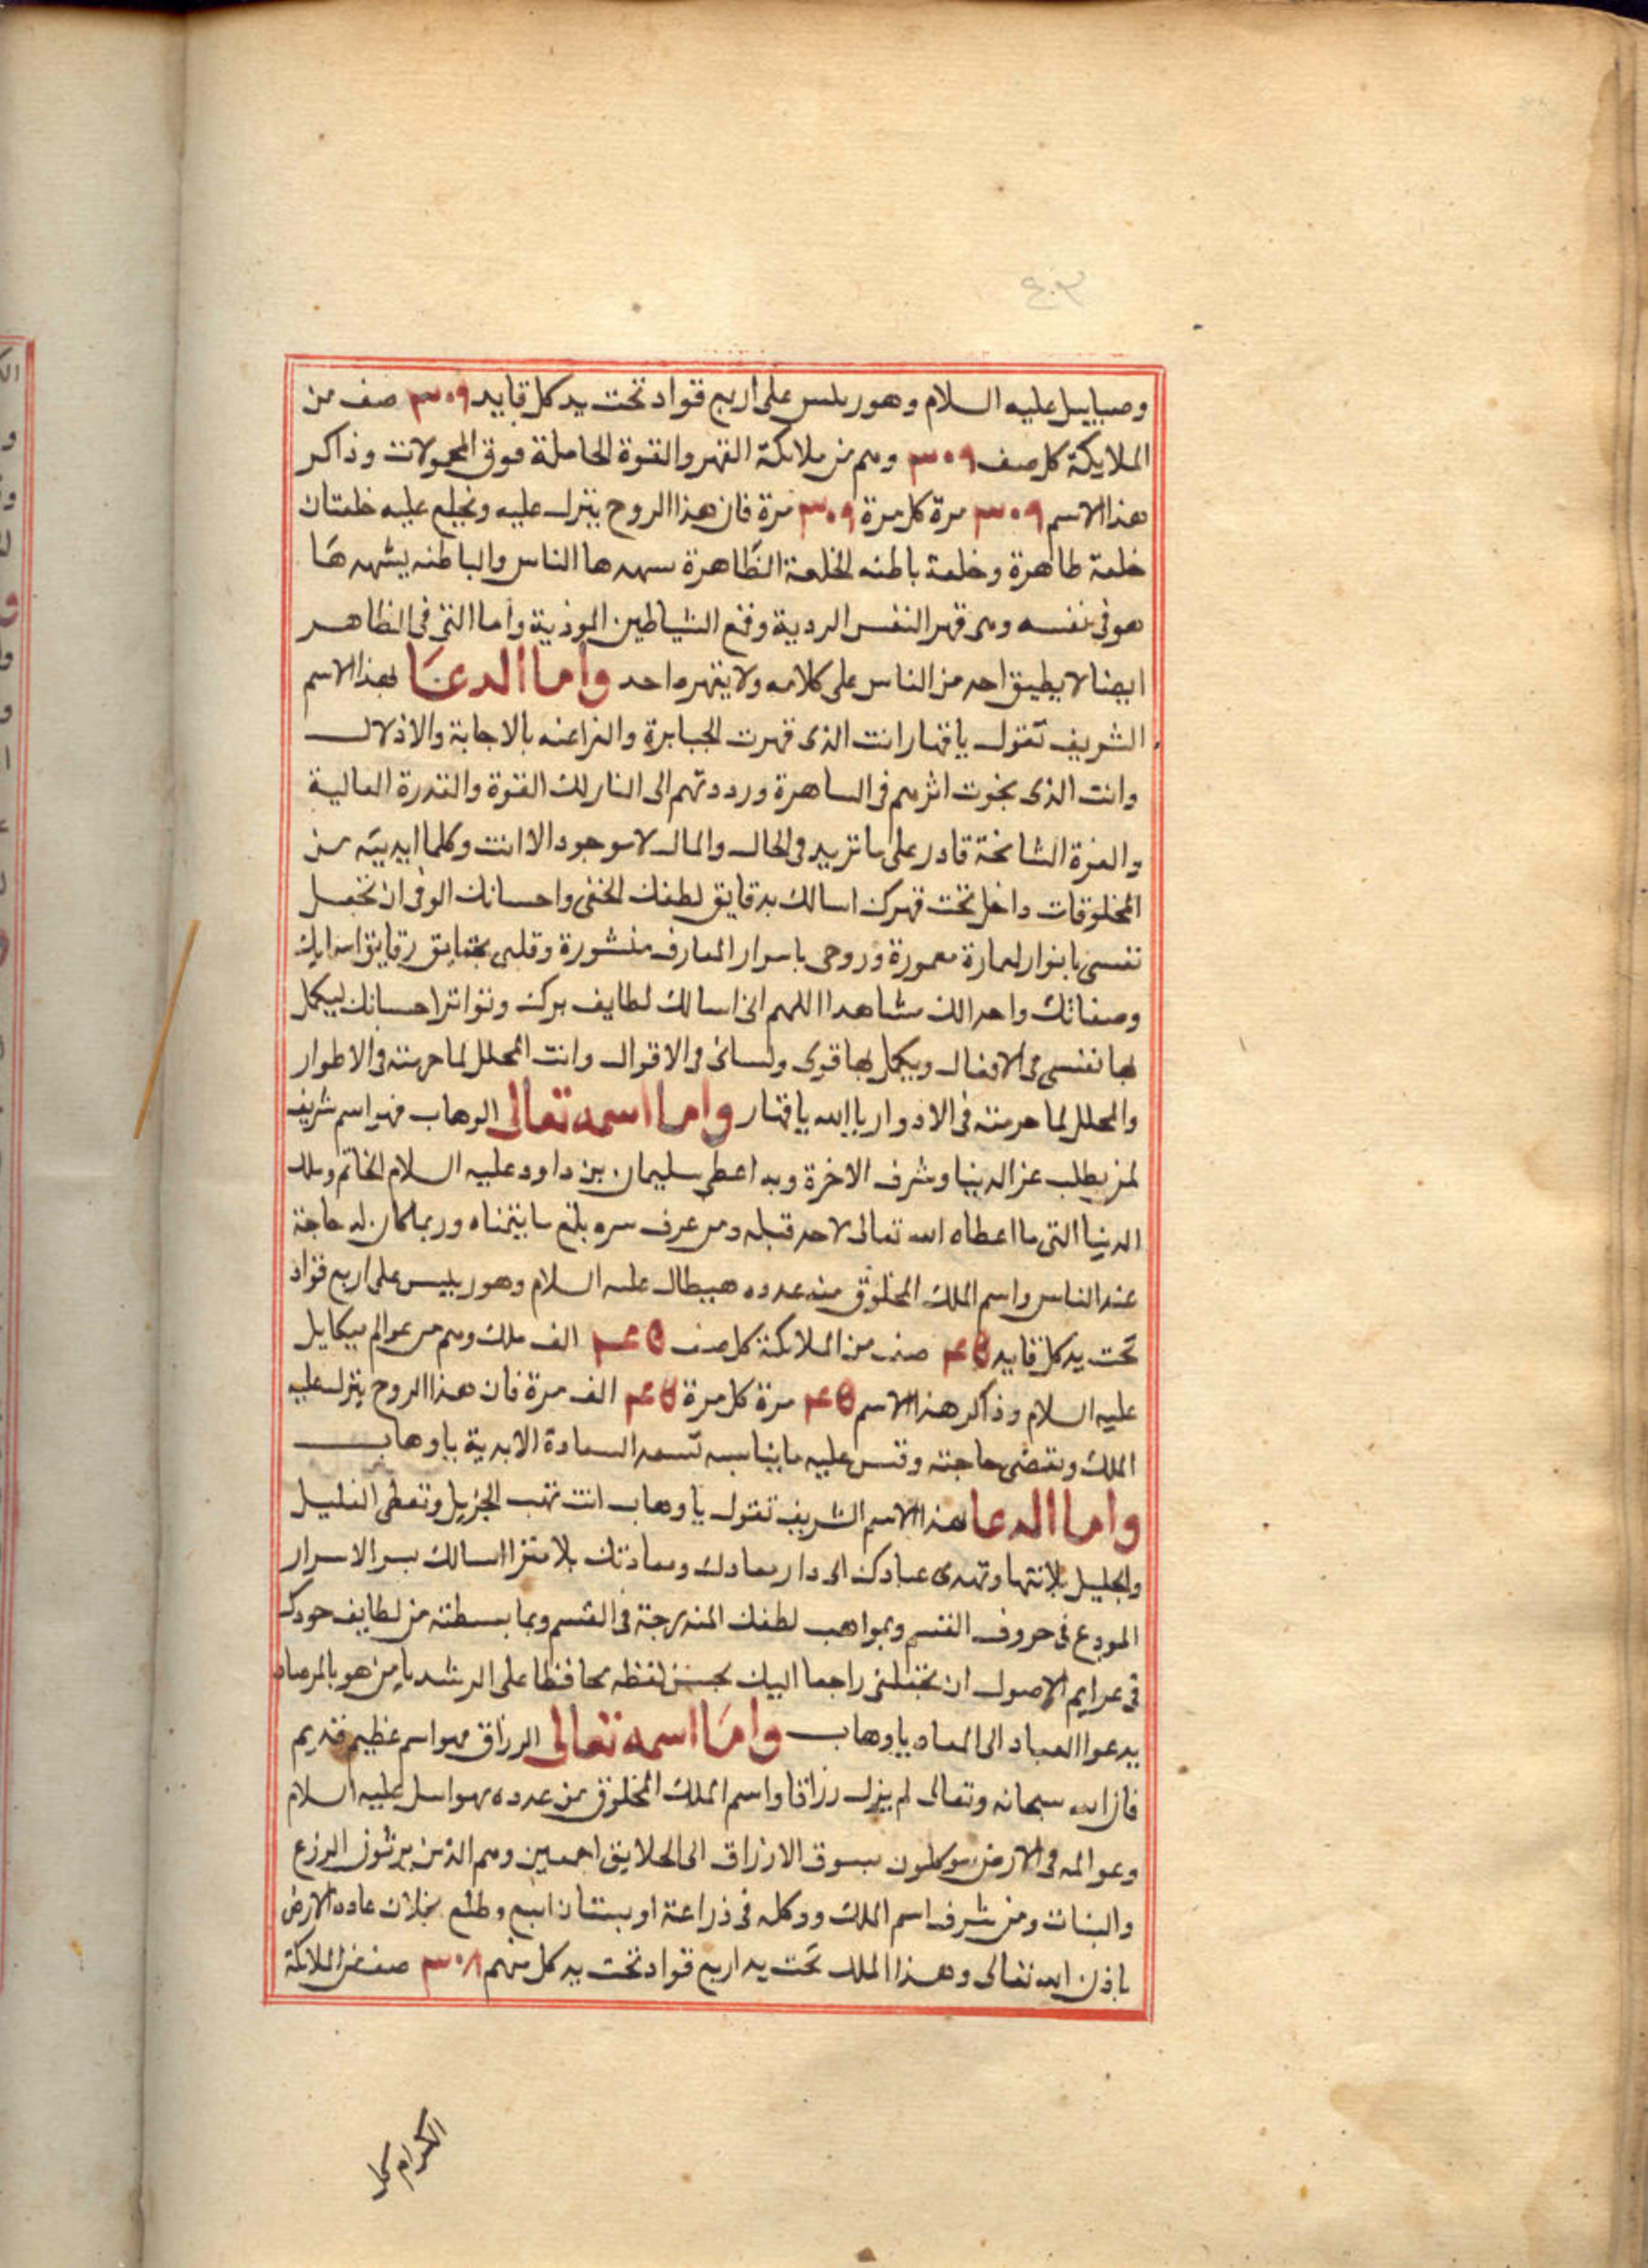 ٤٠٣
وصياييل عليه السلام وهو ريس على اربع قواد تحت يد كل قايد ٣٠٩ صف من
الملايكة كل صف ٣٠٩ وهم من ملائكة القهر والقوة الحاملة فوق المحمولات وذاكر
هذا الاسم ٣٠٩ مرة كل مرة ٣٠٩ مرة فان هذا الروح ينزل عليه ويخلع عليه خلعتان
خلعة ظاهرة وخلعة باطنه الخلعة الظاهرة يشهدها الناس والباطنه يشهدها
هو فى نفسه وهى قهر النفس الردية وقمع الشياطين الموذية واما التى فى الظاهر
ايضا لا يطيق احد من الناس على كلامه ولا يقهره احد واما الدعا بهذا الاسم
الشريف تقول يا قهار انت الذى قهرت الجبابرة والفراعنه بالاجابة والاذلال
وانت الذى اثرهم فى الساهرة ورددتهم الى النار لك القوة والقدرة العالية
والعزة الشامخة قادر على ما تريد فى الحال والمال لا موجود الا انت وكلما ابديته من
المخلوقات داخل تحت قهرك اسالك بدقايق لطفك الخفى واحسانك الوفى ان تجعل
نفسى بانوار العمارة معمورة وروحى باسرار المعارف منشورة وقلبى بحقايق رقايق اسمايك
وصفاتك واحد الك مشاهدا اللهم انى اسالك لطايف برك وتواتر احسانك ليكمل
بها نفسى فى الافعال ويكمل بها قوى ولسانى فى الاقوال وانت المحلل لما حرمته فى الاطوار
والمحلل لما حرمته فى الادوار يا الله يا قهار واما اسمه تعالى الوهاب فهو اسم شريف
لمن يطلب عز الدنيا وشرف الاخرة وبه اعطى سليمان بن داود عليه السلام الخاتم وملك
الدنيا التى ما اعطاه الله تعالى لاحد قبله ومن عرف سره بلغ ما يتمناه وربما كان له حاجة
عند الناس واسم الملك المخلوق من عدده هبيطال عليه السلام وهو رييس على اربع قواد
تحت يد كل قايد ٤٥ صف من الملائكة كل صف ٤٥ الف ملك وهم من عوالم ميكايل
عليه السلام وذاكر هذا الاسم ٤٥ مرة كل مرة ٤٥ الف مرة فان هذا الروح ينزل عليه
الملك وتقضى حاجته عليه ما يناسبه تسعد السعادة الابدية يا وهاب
واما الدعا بهذا الاسم الشريف تقول يا وهاب انت تهب الجزيل وتعطى القليل
والجليل بلا انتها وتهدى عبادك الى دار معادك بلا اسالك بسر الاسرار
المودع فى حروف القسم وبمواهب لطفك المندرجة فى القسم وبما بسطته من لطايف جودك
فى عرايم الاصول ان تجعلنى راجعا اليك بحسن لفظه محافظا على الرشد يا من هو بالمرصاد
يدعوا العباد الى المعاد يا وهاب واما اسمه تعالى الرزاق فهو اسم عظيم قديم
فان الله سبحانه وتعالى لم يزل رزاقا واسم الملك المخلوق من عدده عليه السلام
وعوالمه فى الارض موكلون بسوق الارزاق الى الخلايق اجمعين وهم الذين يرثون الزرع
والنبات ومن شرف اسم الملك ووكله فى ذراعة او بستان اينع وطلع بخلاف عادة الارض
باذن الله تعالى وهذا الملك تحت يد اربع قواد تحت يد كل منهم ٣٠٨ صف من الملائكة
الكرام كل